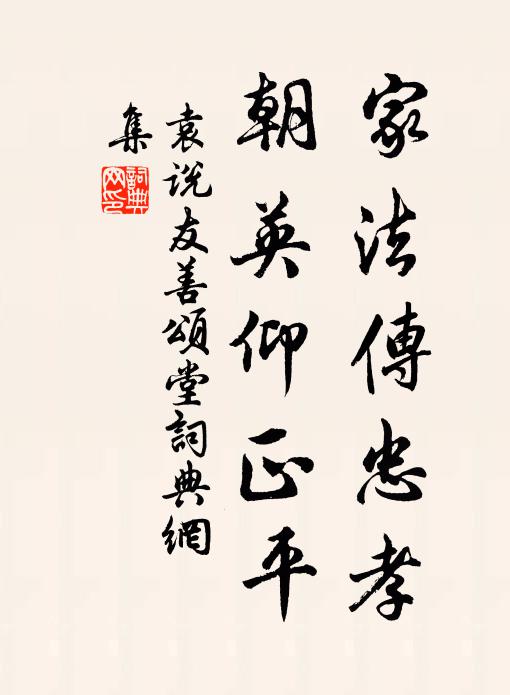 家法傳忠孝
朝英仰正平
袁說友善頌堂詞典網
集
詞典網印